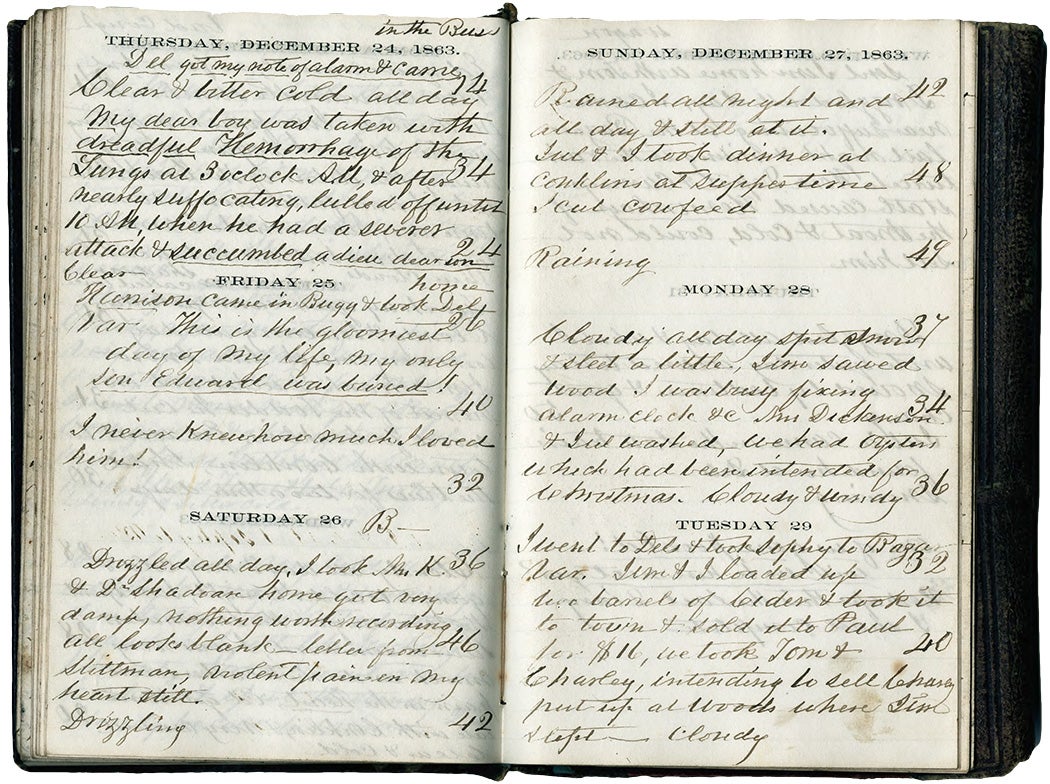 in the Buss
THURSDAY, DECEMBER 24, 1863.
Del got my note of alarm & came
14
Clear & bitter cold all day
My dear boy was taken with
dreadful Hemorrhage of the
Lungs at 3 oclock AM, & after
34
nearly suffocating, lulled off until
10 AM, when he had a severer
attack & succumbed adieu dear son
24
Clear
home
FRIDAY 25
Harrison came in Bugy & took Del
26
Var. This is the gloomiest
day of my life, my only
son Edward was buried!
40
I never knew how much I loved
him!
32
SATURDAY 26 B—
Drizzled all day, I took Mr K.
36
& D. Shadoan home got very
damp, nothing worth recording,
all looks blank — letter from
46
Stittman, violent pain in my
heart still.
Drizzling
42
SUNDAY, DECEMBER 27, 1863.
Rained all night and
42
all day & still at it.
Jul & I took dinner at
Conklins at Supper time
48
I cut cowfeed
Raining
49.
MONDAY 28
Cloudy all day spit snow
37
& sleet a little, Jim sawed
wood I was busy fixing
alarm clock &c Mrs Dickenson
34
& Jul washed, we had Oysters
which had been intended for
Christmas. Cloudy & windy
36
TUESDAY 29
I went to Dels & took Sophy to
32
Var. Jim & I loaded up
two barrels of Cider & took it
to town & sold it to Paul
for $16, we took Tom &
40
Charley, intending to sell Charley
put up at Woods where Jim
slept — Cloudy